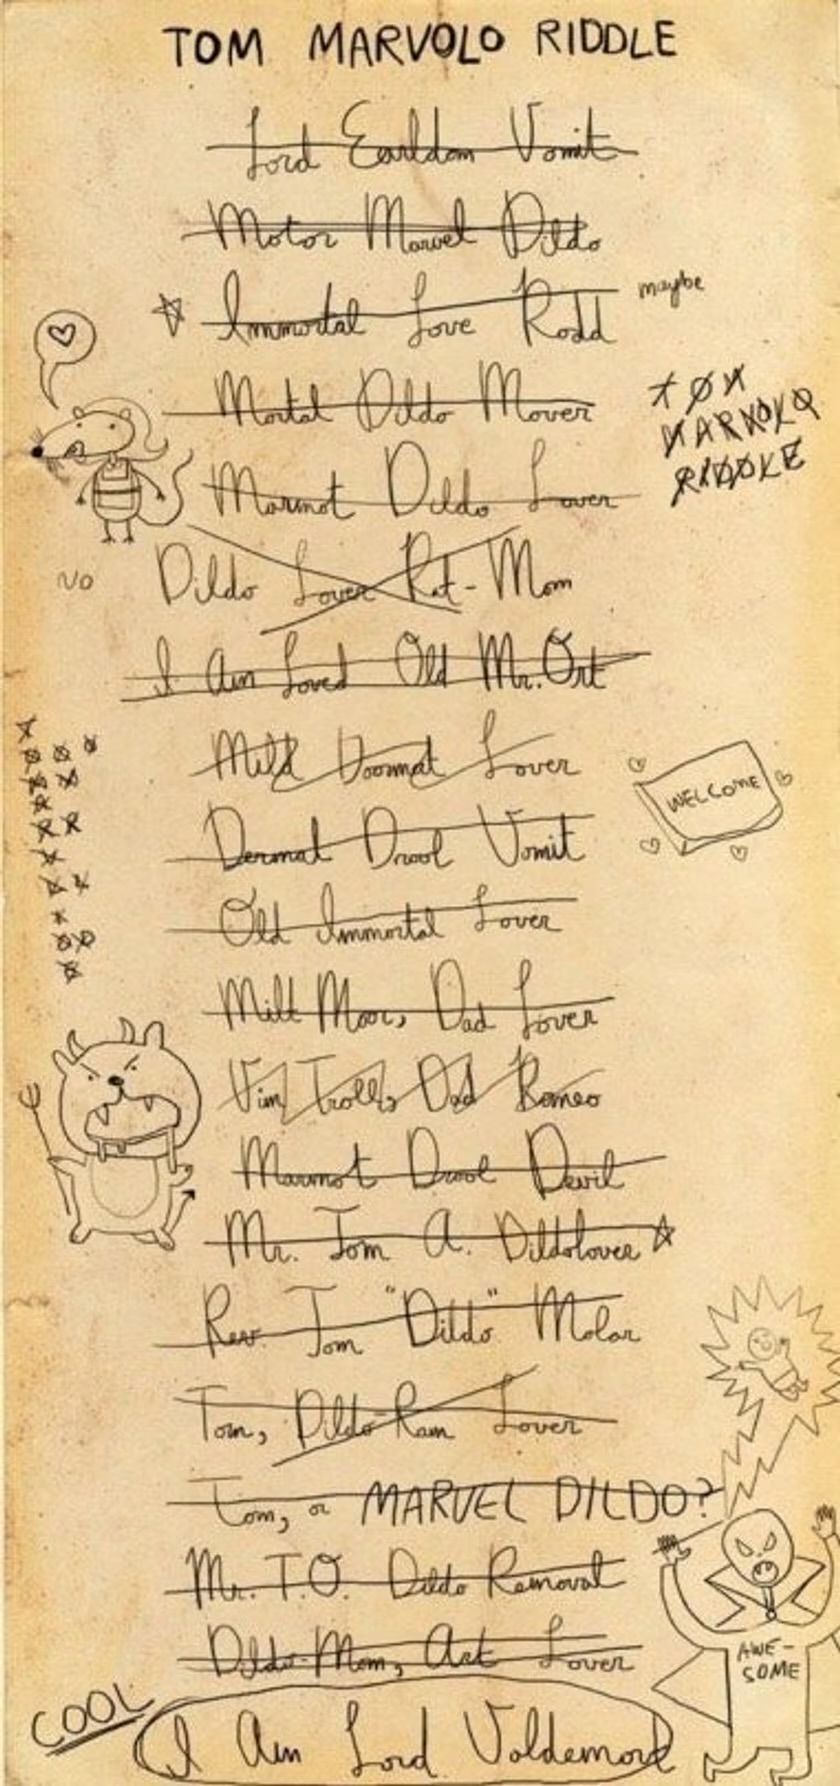 TOM MARVOLO RIDDLE
Lord Earldom Vomit
Motor Marvel Dildo
Immortal Love Rodd
maybe
Mortal Dildo Mover
TOM
MARVOLO
RIDDLE
Marmot Dildo Lover
NO
Dildo Lover Rat-Mom
I Am Loved Old Mr. Ort
Mild Doormat Lover
WELCOME
Dermal Drool Vomit
Old Immortal Lover
Milt Moor, Dad Lover
Vim Troll, Dad Romeo
Marmot Drool Devil
Mr. Tom A. Dildolover
Rev. Tom "Dildo" Molar
Tom, Dildo Ram Lover
Tom, or MARVEL DILDO?
Mr. T.O. Dildo Removal
Dildo-Mom, Art Lover
AWE-
SOME
COOL
I Am Lord Voldemort